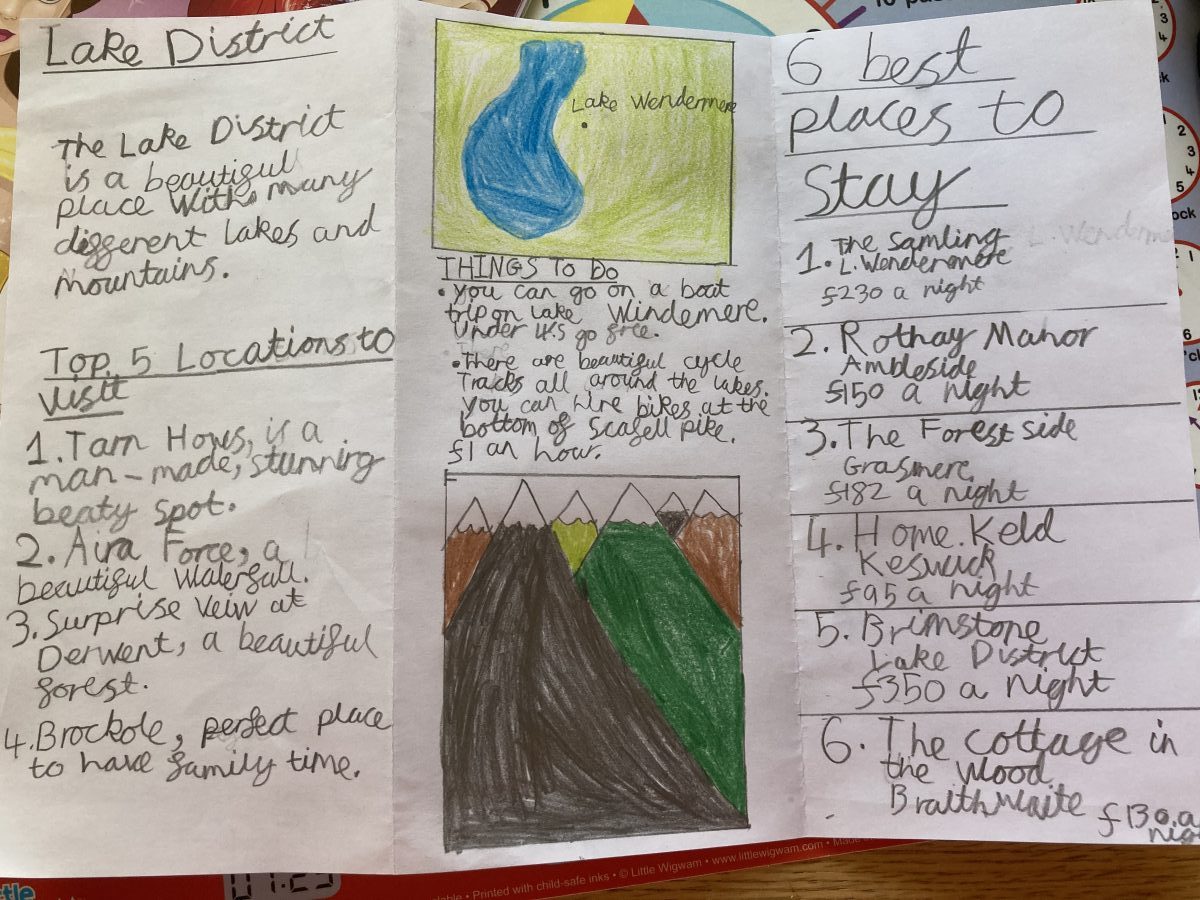 Lake District
The Lake District
is a beautiful
place with many
different lakes and
mountains.
Top 5 Locations to
visit
1. Tarn Hows, is a
man-made, stunning
beaty spot.
2. Aira Force, a
beautiful waterfall.
3. Surprise veiw at
Derwent, a beautiful
forest.
4. Brockole, perfect place
to have family time.
Lake Wendermere
THINGS To Do
• you can go on a boat
trip on lake Windemere.
Under 4s go free.
• There are beautiful cycle
Tracks all around the lakes.
you can hire bikes at the
bottom of scafell pike.
£1 an hour.
6 best
places to
stay
1. The Samling
L. Wendermere
£230 a night
2. Rothay Manor
Ambleside
£150 a night
3. The Forest side
Grasmere
£182 a night
4. Home. Keld
Keswick
£95 a night
5. Brimstone
Lake District
£350 a night
6. The cottage in
the wood
Braithwaite
£130. a
night
01:23
• Printed with child-safe inks • © Little Wigwam • www.littlewigwam.com • Made